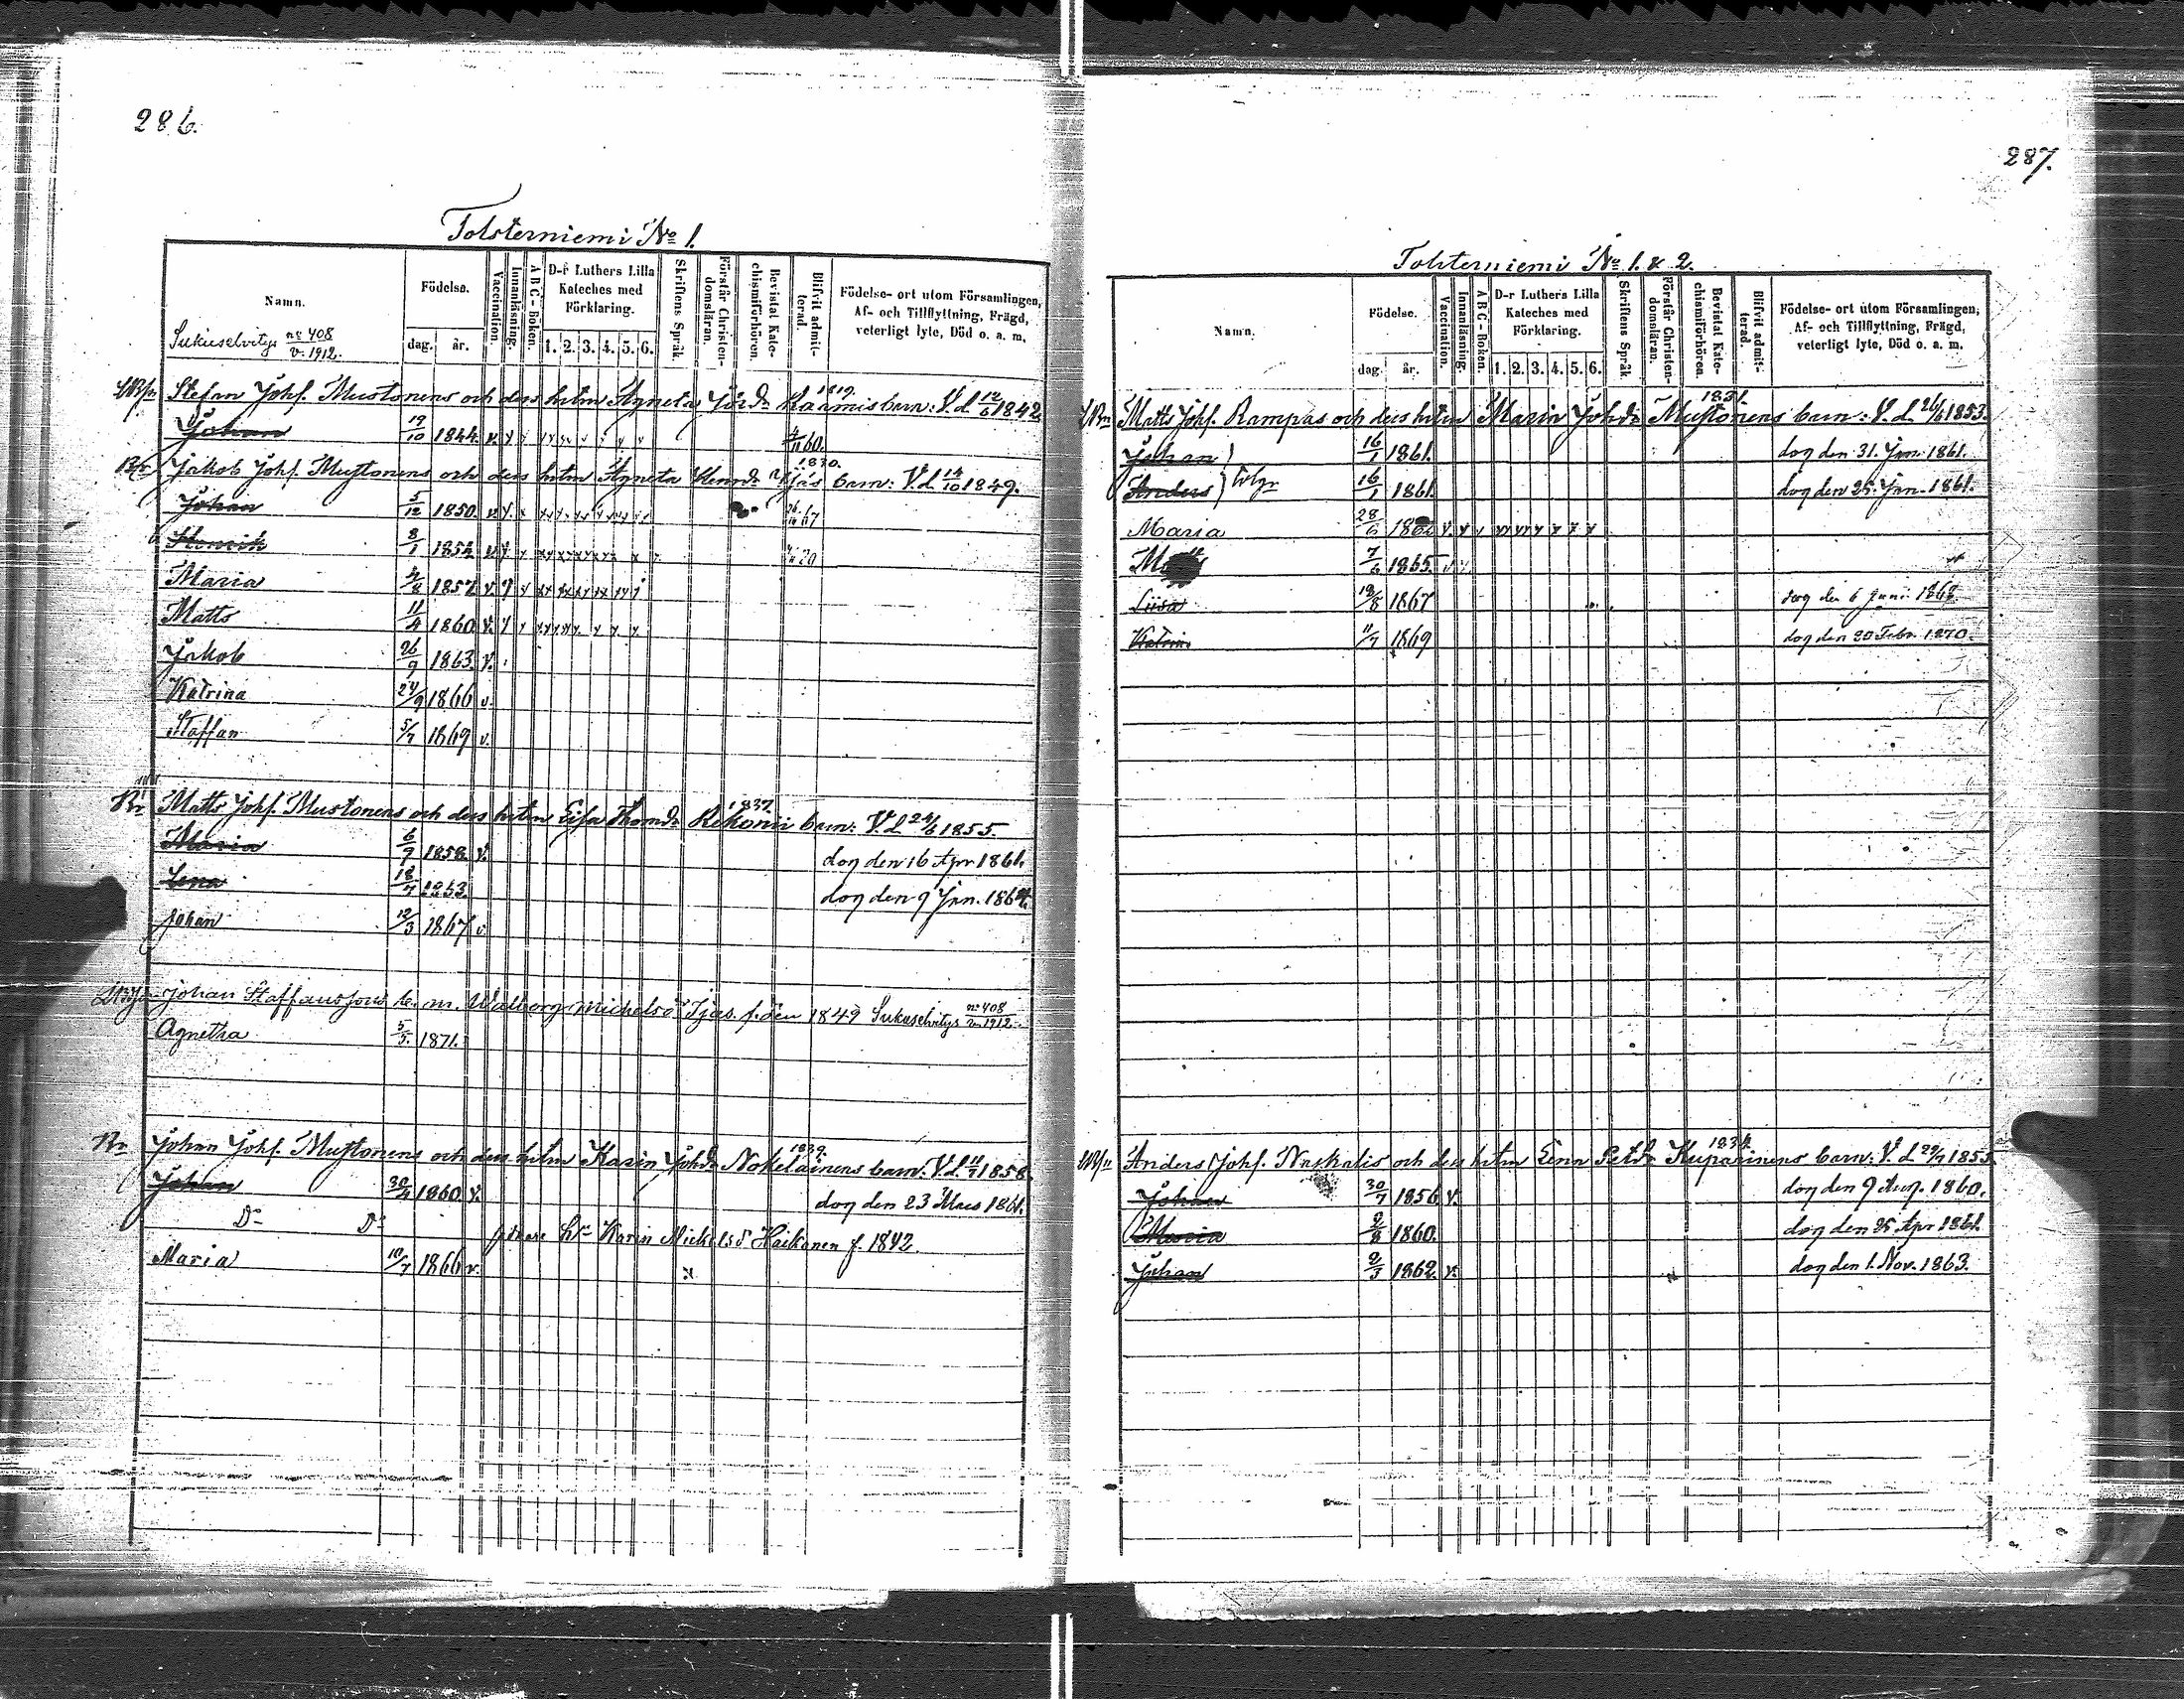 286.
Tolsterniemi No 1.
Namn.
Födelse.
dag. år.
Vaccination.
Innanläsning.
A B C - Boken.
D-r Luthers Lilla Kateches med Förklaring.
1. 2. 3. 4. 5. 6.
Skriftens Språk.
Förstår Christendomsläran.
Bevistat Katechismiförhören.
Blifvit admitterad.
Födelse- ort utom Församlingen, Af- och Tillflyttning, Frägd, veterligt lyte, Död o. a. m.
Sukuselvitys no 408 v. 1912.
Stefan Johs. Mustonens och dess hstru Agneta Jörd: 1819. barn: V. d. 12/6 1842
Johan 19/10 1844. v. 4/11 60.
Br Jakob Johs. Mustonens och dess hstru Agneta Henrd: 1830. Ijäs barn: V. d. 14/10 1849.
Johan 5/12 1850. v.
Henrik 8/1 1854. v.
Maria 4/8 1857. v.
Matts 11/4 1860. v.
Jakob 26/9 1863. v.
Katrina 24/9 1866 v.
Staffan 5/7 1869 v.
Br Matts Johs. Mustonens och dess hstru Eisa Thomd: 1837 Rekonii barn: V. d. 24/6 1855.
Maria 6/9 1858. v. dog den 16 Apr 1861.
Lena 18/7 1863. dog den 9 Jan. 1864.
Johan 12/3 1867 v.
Johan Staffansson h. m. Walborg Michelsd. Ijäs. född 1849 Sukuselvitys no 408 v. 1912.
Agnetha 5/5 1871.
Br Johan Johs. Mustonens och dess hstru Karin Johd: 1839. Nokelainens barn: V. d. 11/7 1858.
Johan 30/4 1860. v. dog den 23 Mars 1861.
Do Do senare h. Karin Mickelsd. Haikonen f. 1842
Maria 10/7 1866 v.
287.
Tolsterniemi No 1. & 2.
Namn.
Födelse.
dag. år.
Vaccination.
Innanläsning.
A B C - Boken.
D-r Luthers Lilla Kateches med Förklaring.
1. 2. 3. 4. 5. 6.
Skriftens Språk.
Förstår Christendomsläran.
Bevistat Katechismiförhören.
Blifvit admitterad.
Födelse- ort utom Församlingen, Af- och Tillflyttning, Frägd, veterligt lyte, Död o. a. m.
Matts Johs. Rampas och dess hstru Maria Johd: 1831. Mustonens barn: V. d. 26/6 1853.
Johan 16/1 1861. dog den 31. Jan. 1861.
Anders 16/1 1861. dog den 25. Jan. 1861.
Maria 28/6 1862 v.
7/6 1865.
Liisa 19/8 1867 dog den 6 Juni 1868.
Katrina 11/7 1869 dog den 20 Febr. 1870.
Anders Johs. Naskalis och dess hstru Lena Petd: 1834 Kuparinens barn: V. d. 29/7 1855
Johan 30/7 1856 v. dog den 9 Aug. 1860.
Maria 2/8 1860. dog den 25 Apr 1861.
Johan 2/3 1862. v. dog den 1. Nov. 1863.